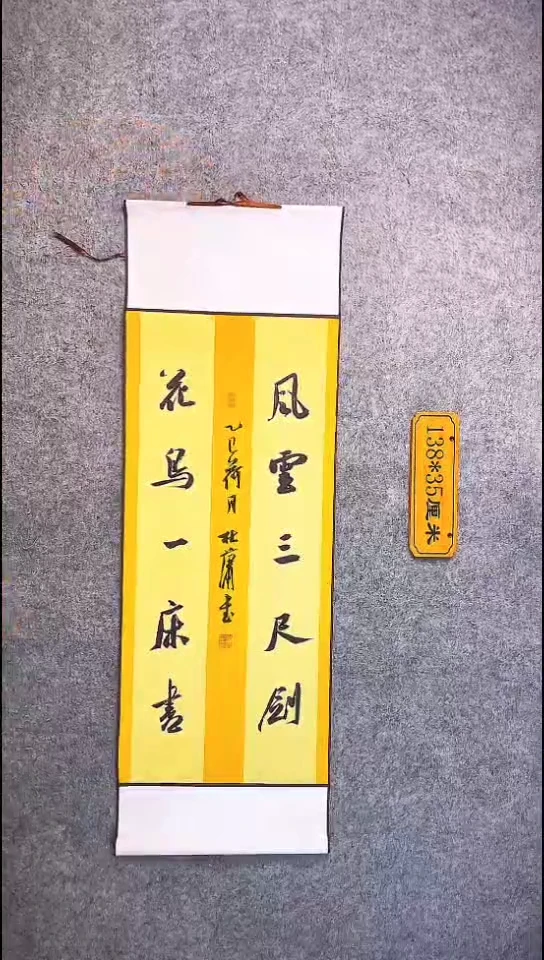 風雲三尺劍
花鳥一床書
乙巳荷月 杜
138*35厘米